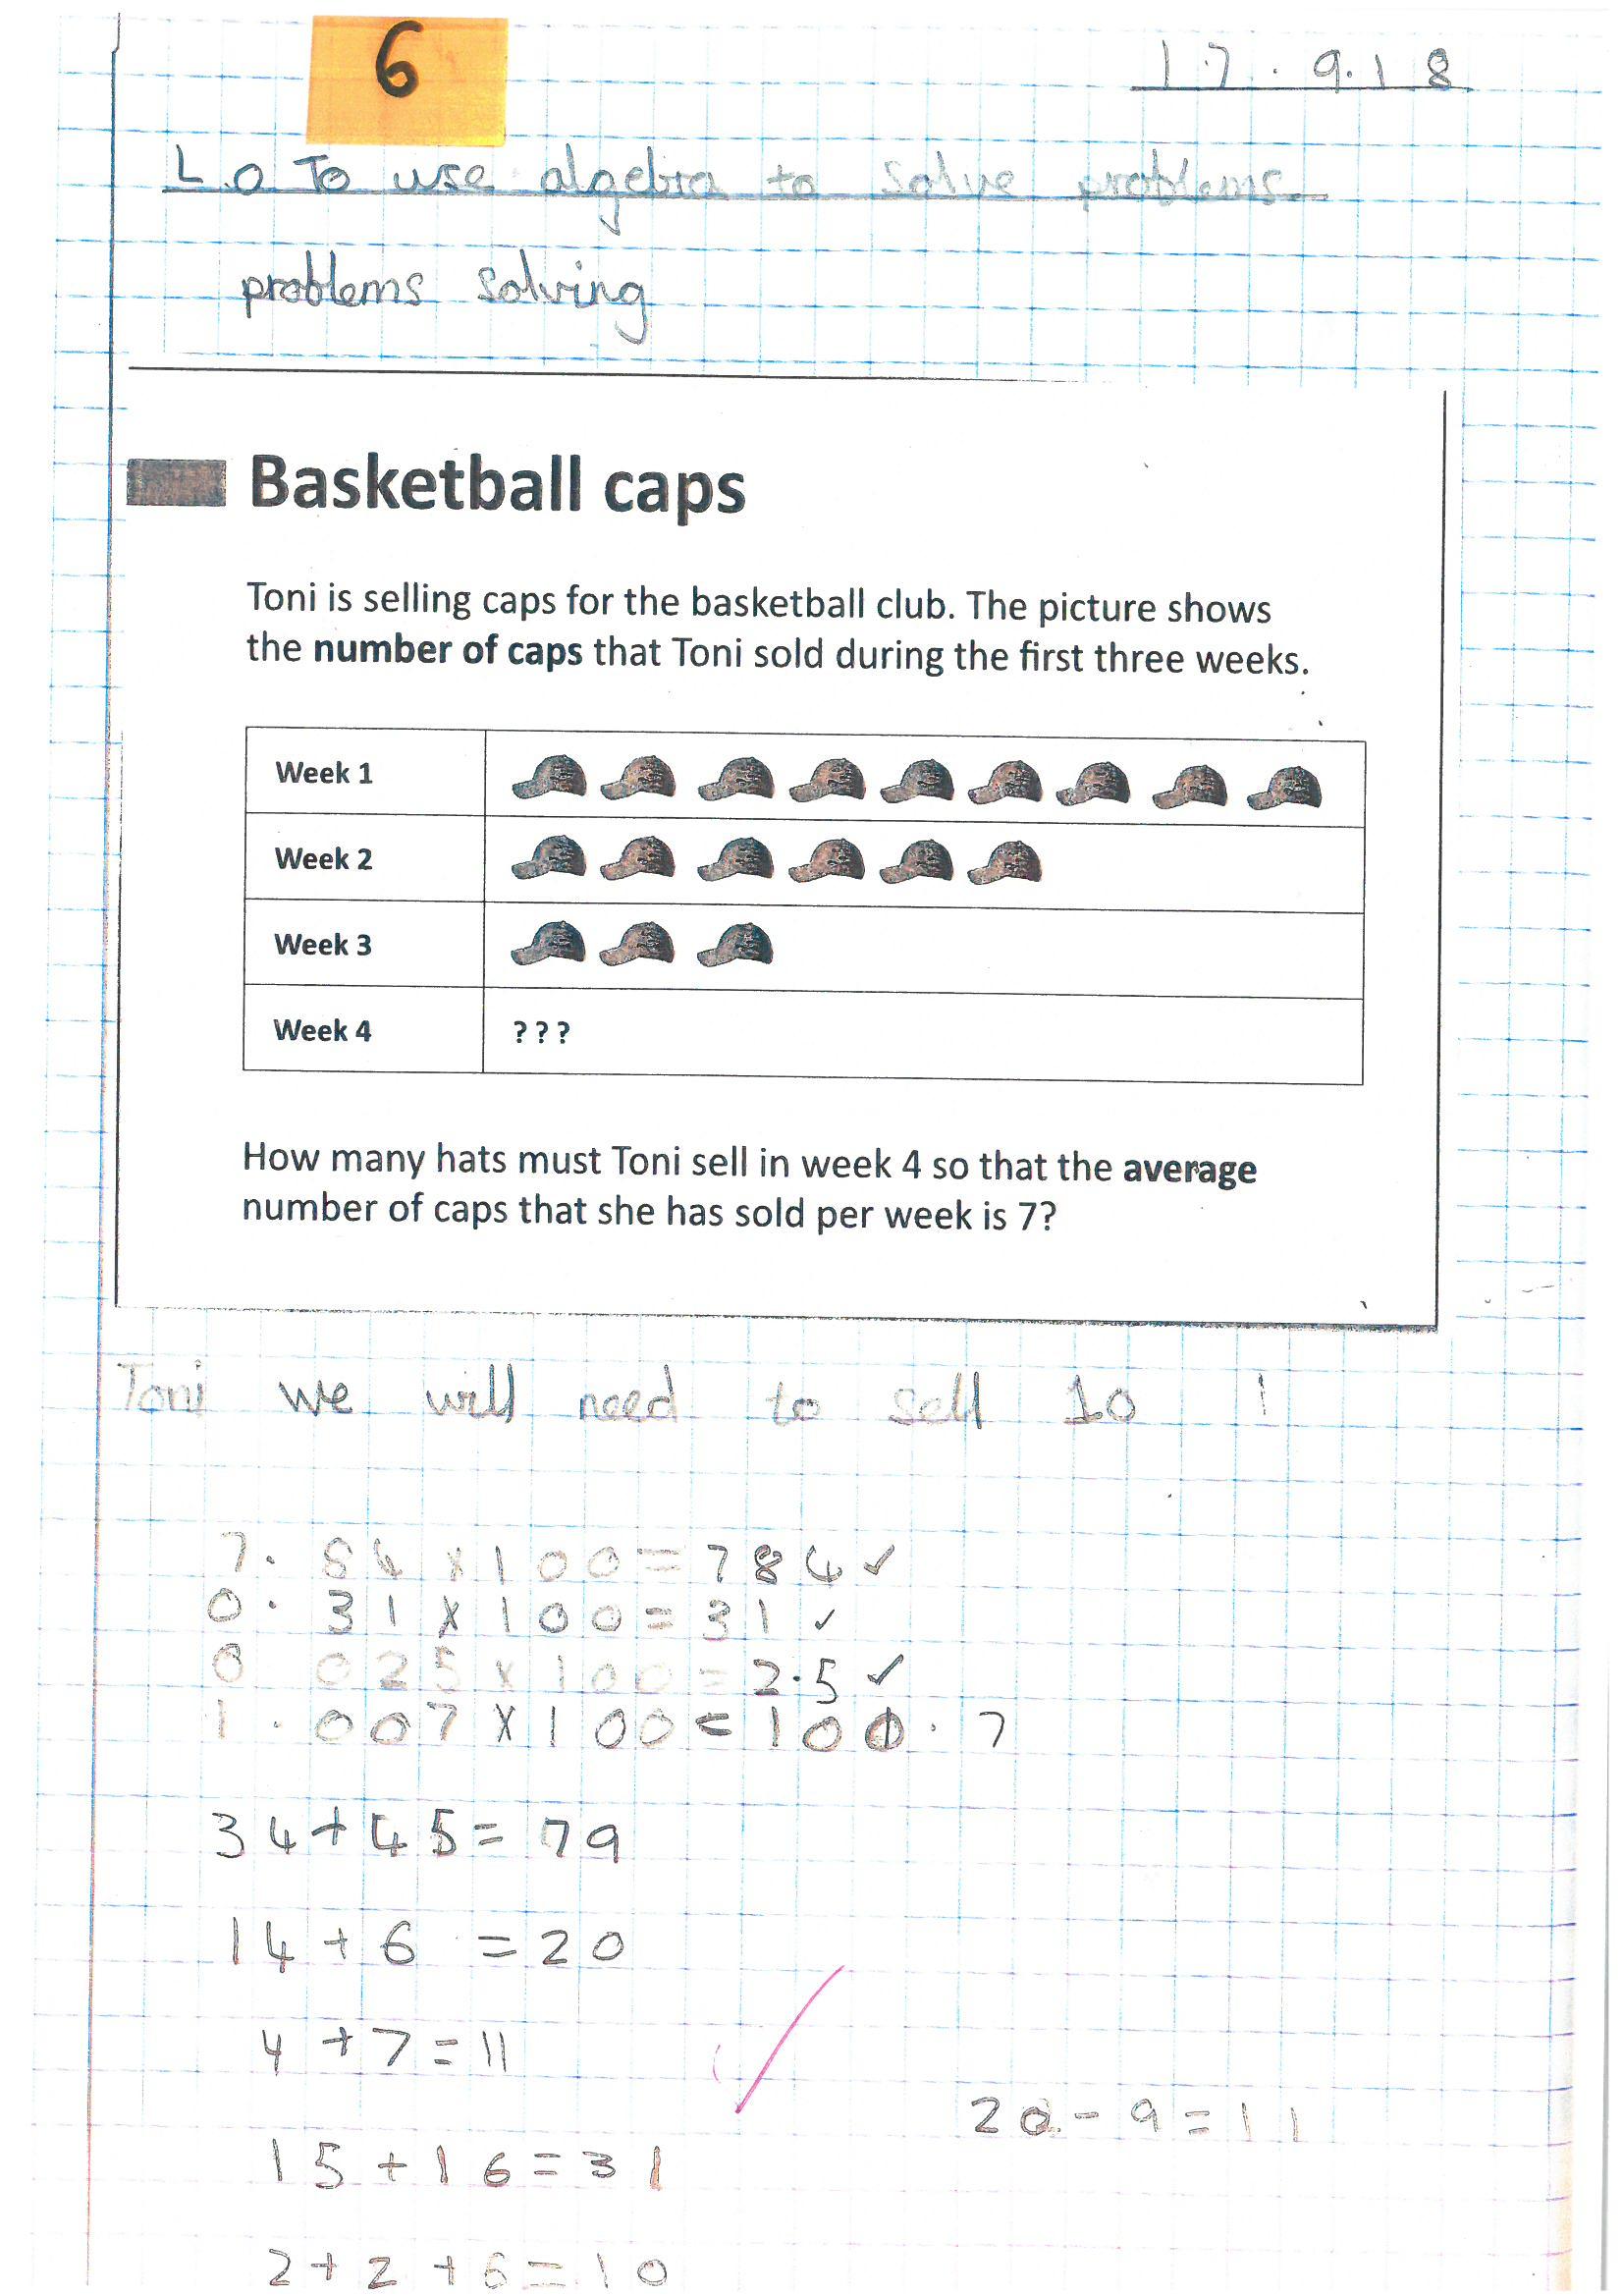 6
17.9.18
L.O To use algebra to solve problems
problems solving
Basketball caps
Toni is selling caps for the basketball club. The picture shows
the number of caps that Toni sold during the first three weeks.
Week 1
Week 2
Week 3
Week 4 ???
How many hats must Toni sell in week 4 so that the average
number of caps that she has sold per week is 7?
Toni we will need to sell 10 !
7.84 x 100 = 784 ✓
0.31 x 100 = 31 ✓
0 025 x 100 = 2.5 ✓
1.007 x 100 = 100.7
34 + 45 = 79
14 + 6 = 20
4 + 7 = 11
20 - 9 = 11
15 + 16 = 31
2 + 2 + 6 = 10